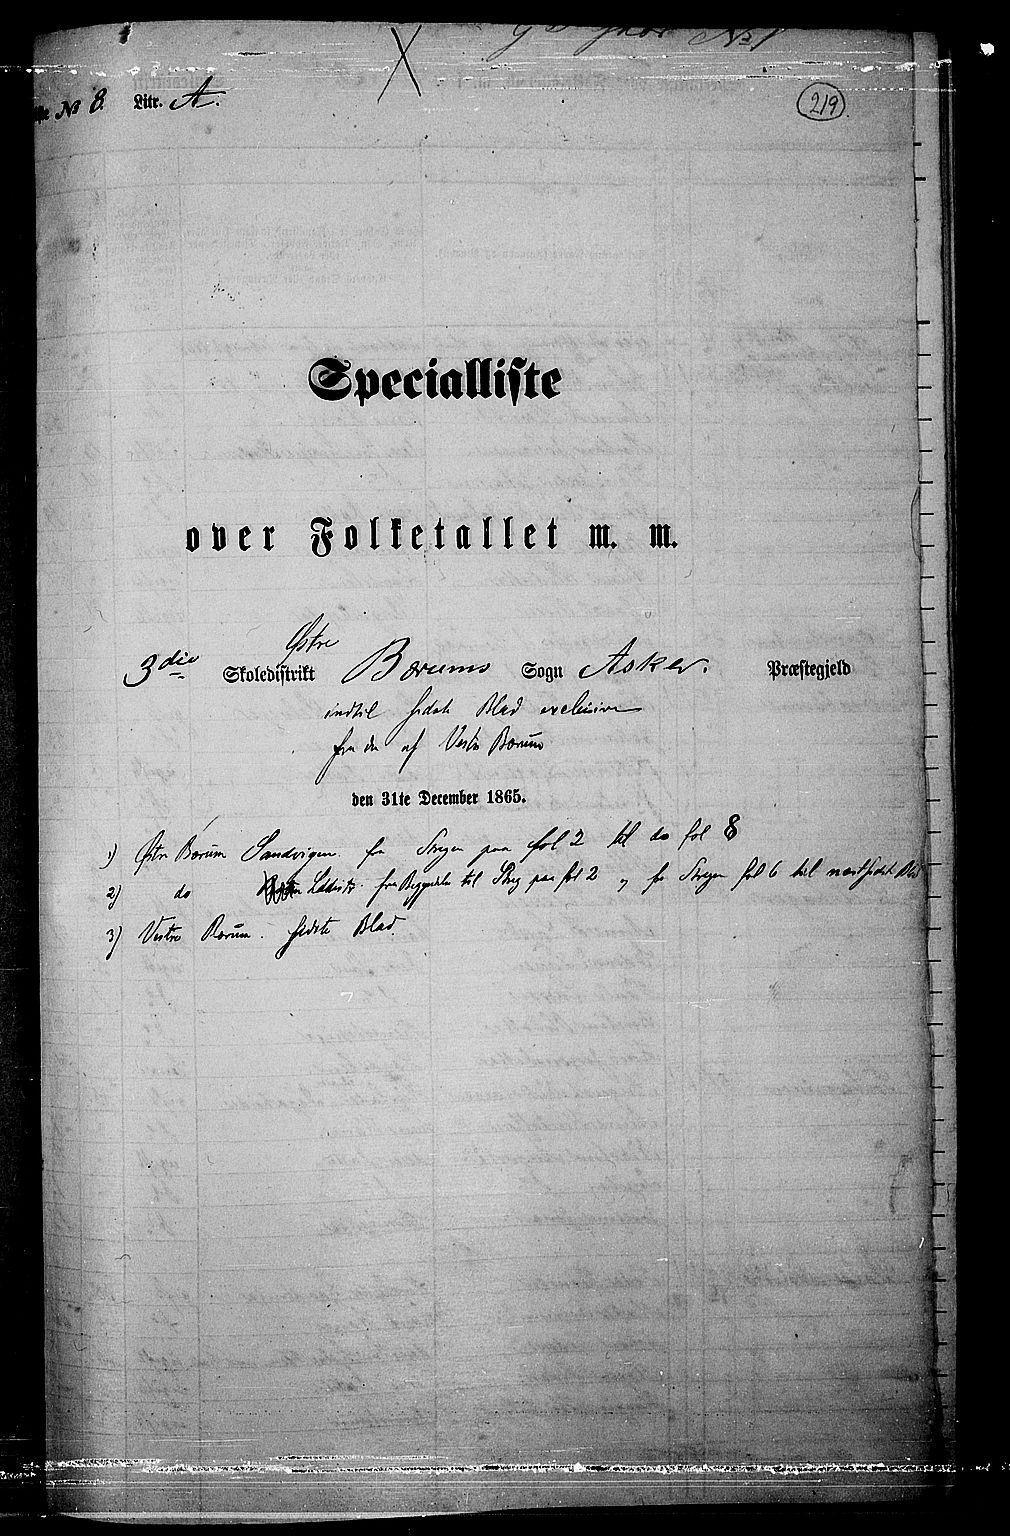 No 1
No 8. Litr. A.
219
Specialliste
over Folketallet m. m.
Østre
3die Skoledistrikt Bærums Sogn Asker. Præstegjeld
indtil sidste Blad exclusive
fra da af Vestre Bærum
den 31te December 1865.
1) Østre Bærum Sandvigen. fra Stregen paa fol 2 til do fol 8
2) do fra til Streg paa fol 2 og fra Stregen fol 6 til næstsidste Blad
3) Vestre Bærum. sidste Blad